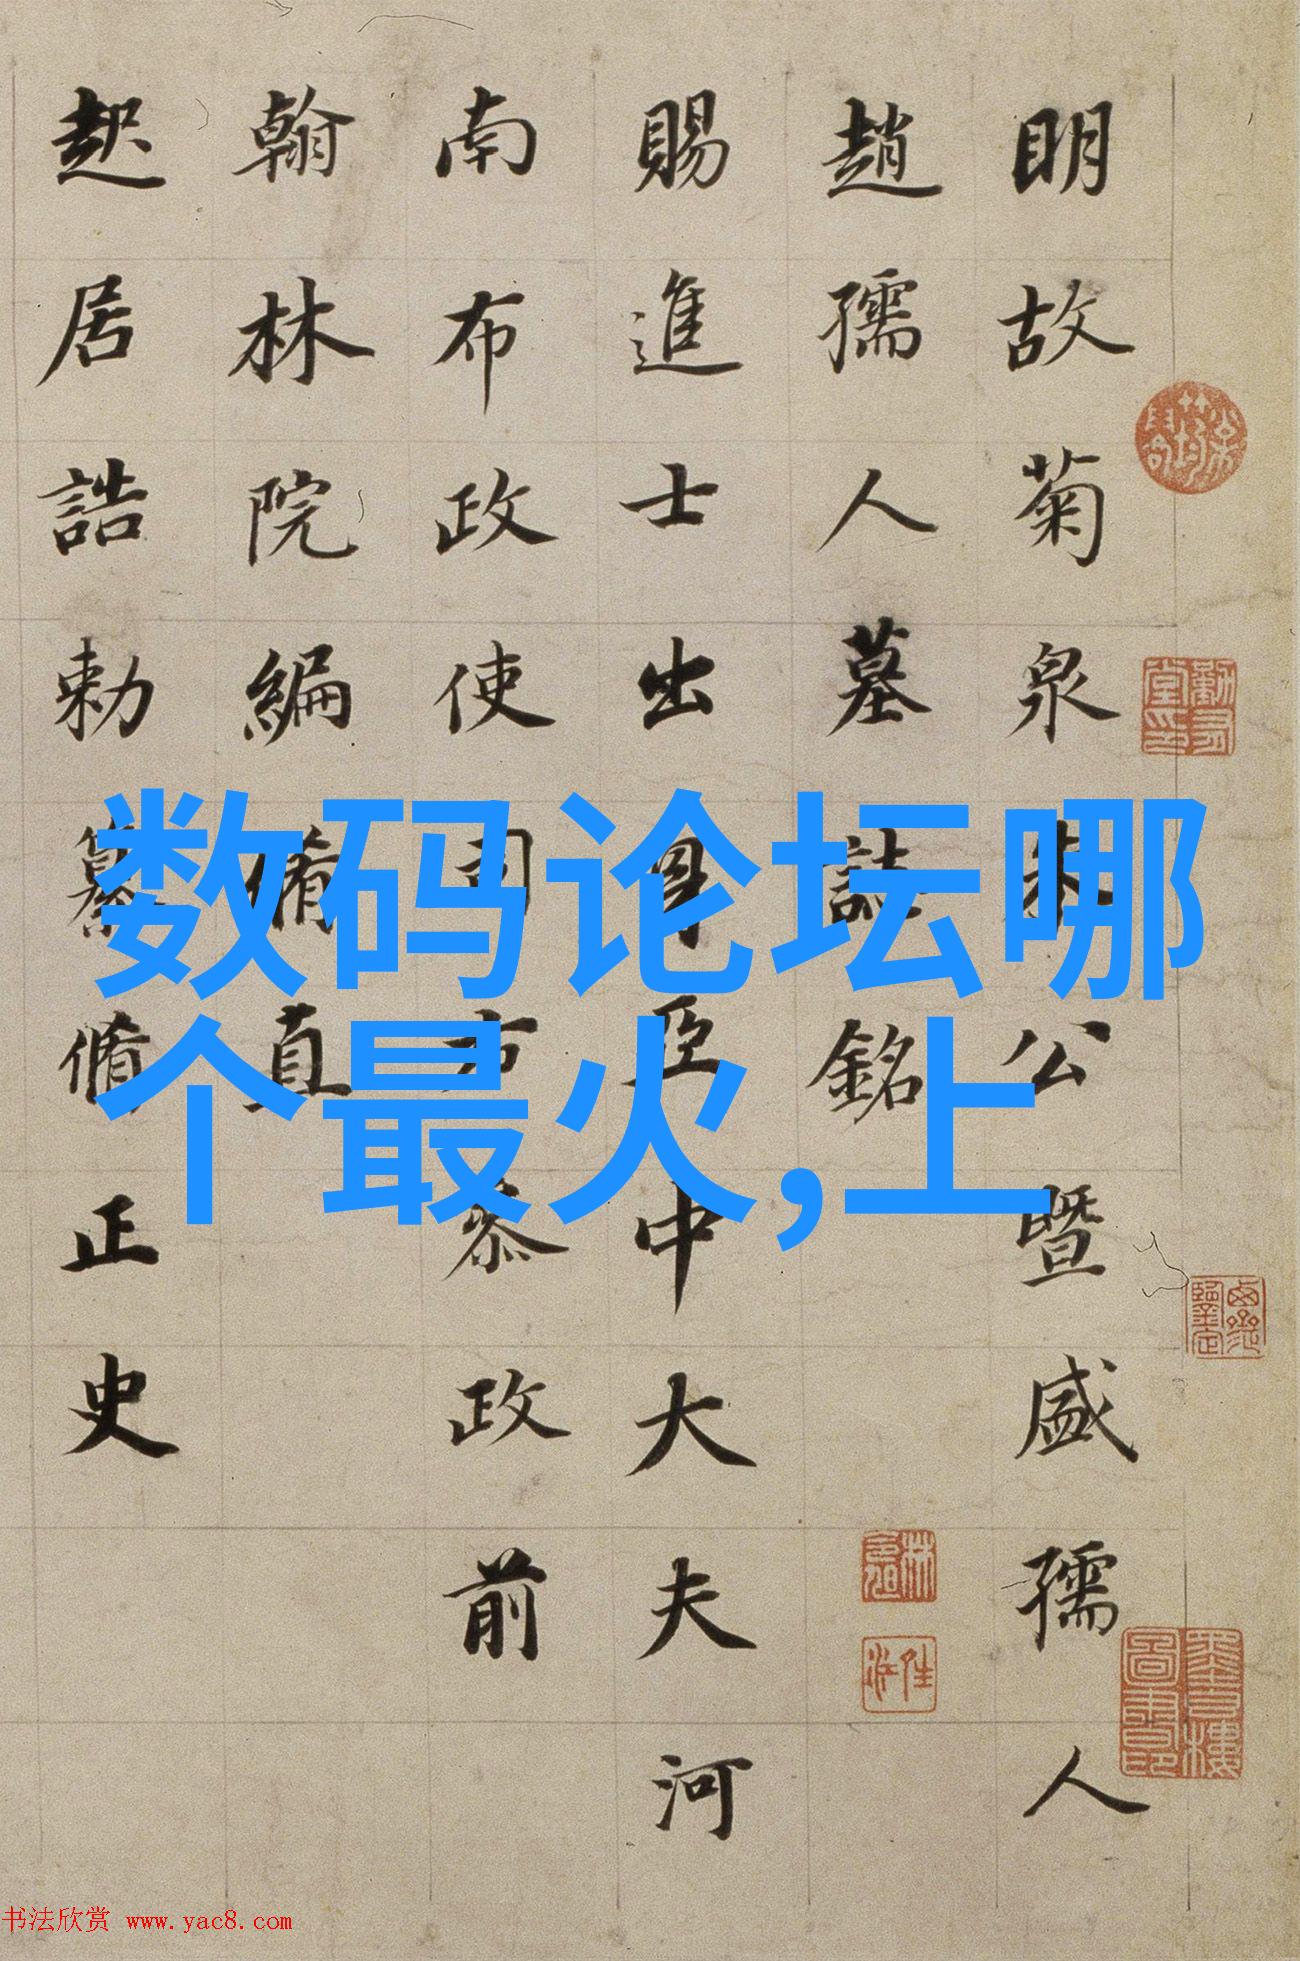 明故菊泉朱公暨盛孺人
趙孺人墓誌銘
賜進士出身亞中大夫河
南布政使司右叅政前
翰林院編脩直
起居誥勅纂脩正史
数码论坛哪
个最火,上
书法欣赏 www.yac8.com